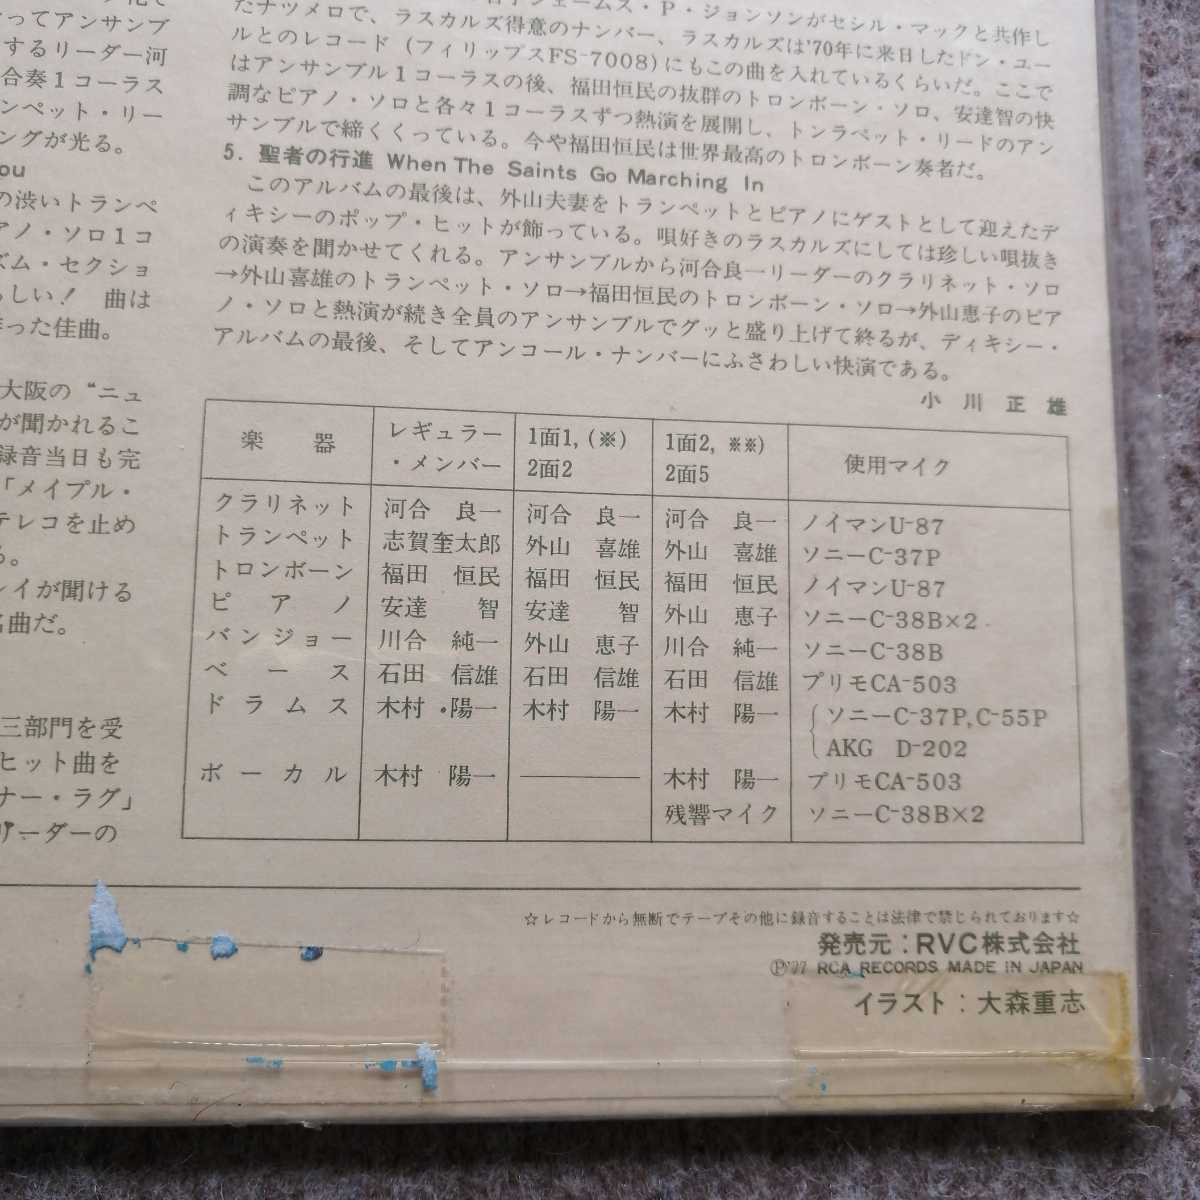 ってアンサンブ
するリーダー河
合奏1コーラス
ンペット・リー
ングが光る。
ou
の渋いトランペ
アノ・ソロ1コ
ズム・セクショ
らしい! 曲は
った佳曲。
大阪の“ニュ
が聞かれるこ
録音当日も完
「メイプル・
テレコを止め
る。
レイが聞ける
名曲だ。
三部門を受
ヒット曲を
ナー・ラグ」
リーダーの
ジェームス・P・ジョンソンがセシル・マックと共作し
たナツメロで、ラスカルズ得意のナンバー、ラスカルズは'70年に来日したドン・ユー
ルとのレコード(フィリップスFS-7008)にもこの曲を入れているくらいだ。ここで
はアンサンブル1コーラスの後、福田恒民の抜群のトロンボーン・ソロ、安達智の快
調なピアノ・ソロと各々1コーラスずつ熱演を展開し、トンラペット・リードのアン
サンブルで締くくっている。今や福田恒民は世界最高のトロンボーン奏者だ。
5. 聖者の行進 When The Saints Go Marching In
このアルバムの最後は、外山夫妻をトランペットとピアノにゲストとして迎えたデ
ィキシーのポップ・ヒットが飾っている。唄好きのラスカルズにしては珍しい唄抜き
の演奏を聞かせてくれる。アンサンブルから河合良一リーダーのクラリネット・ソロ
→外山喜雄のトランペット・ソロ→福田恒民のトロンボーン・ソロ→外山恵子のピア
ノ・ソロと熱演が続き全員のアンサンブルでグッと盛り上げて終るが、ディキシー・
アルバムの最後、そしてアンコール・ナンバーにふさわしい快演である。
小川正雄
楽器 レギュラー・メンバー 1面1,(※) 2面2 1面2,※※) 2面5 使用マイク
クラリネット 河合 良一 河合 良一 河合 良一 ノイマンU-87
トランペット 志賀奎太郎 外山 喜雄 外山 喜雄 ソニーC-37P
トロンボーン 福田 恒民 福田 恒民 福田 恒民 ノイマンU-87
ピアノ 安達 智 安達 智 外山 恵子 ソニーC-38B×2
バンジョー 川合 純一 外山 恵子 川合 純一 ソニーC-38B
ベース 石田 信雄 石田 信雄 石田 信雄 プリモCA-503
ドラムス 木村・陽一 木村 陽一 木村 陽一 ソニーC-37P,C-55P
AKG D-202
ボーカル 木村 陽一 ——— 木村 陽一 プリモCA-503
残響マイク ソニーC-38B×2
☆レコードから無断でテープその他に録音することは法律で禁じられております☆
発売元:RVC株式会社
Ⓟ'77 RCA RECORDS MADE IN JAPAN
イラスト:大森重志